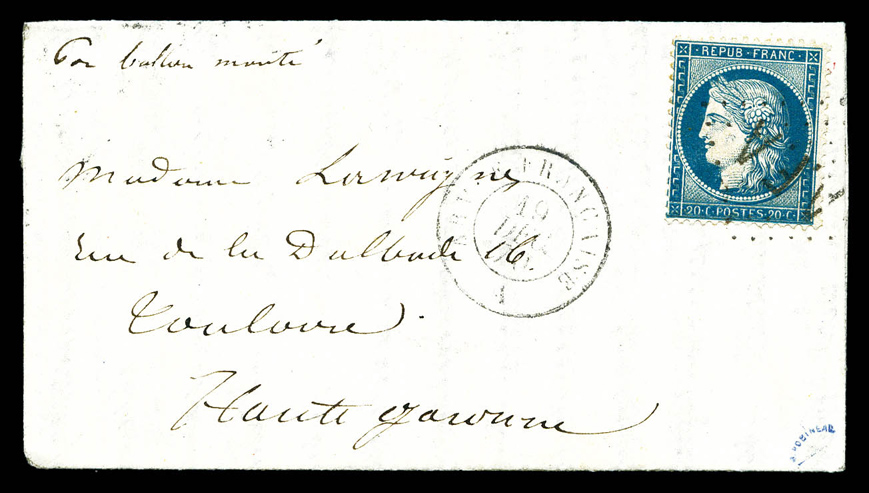 Par ballon monté
REPUB·FRANC·
20·C·POSTES·20·C·
Madame
FRANÇAISE
19
DEC
rue de la Dalbade 16
Toulouse
Haute garonne
ROBINEAU